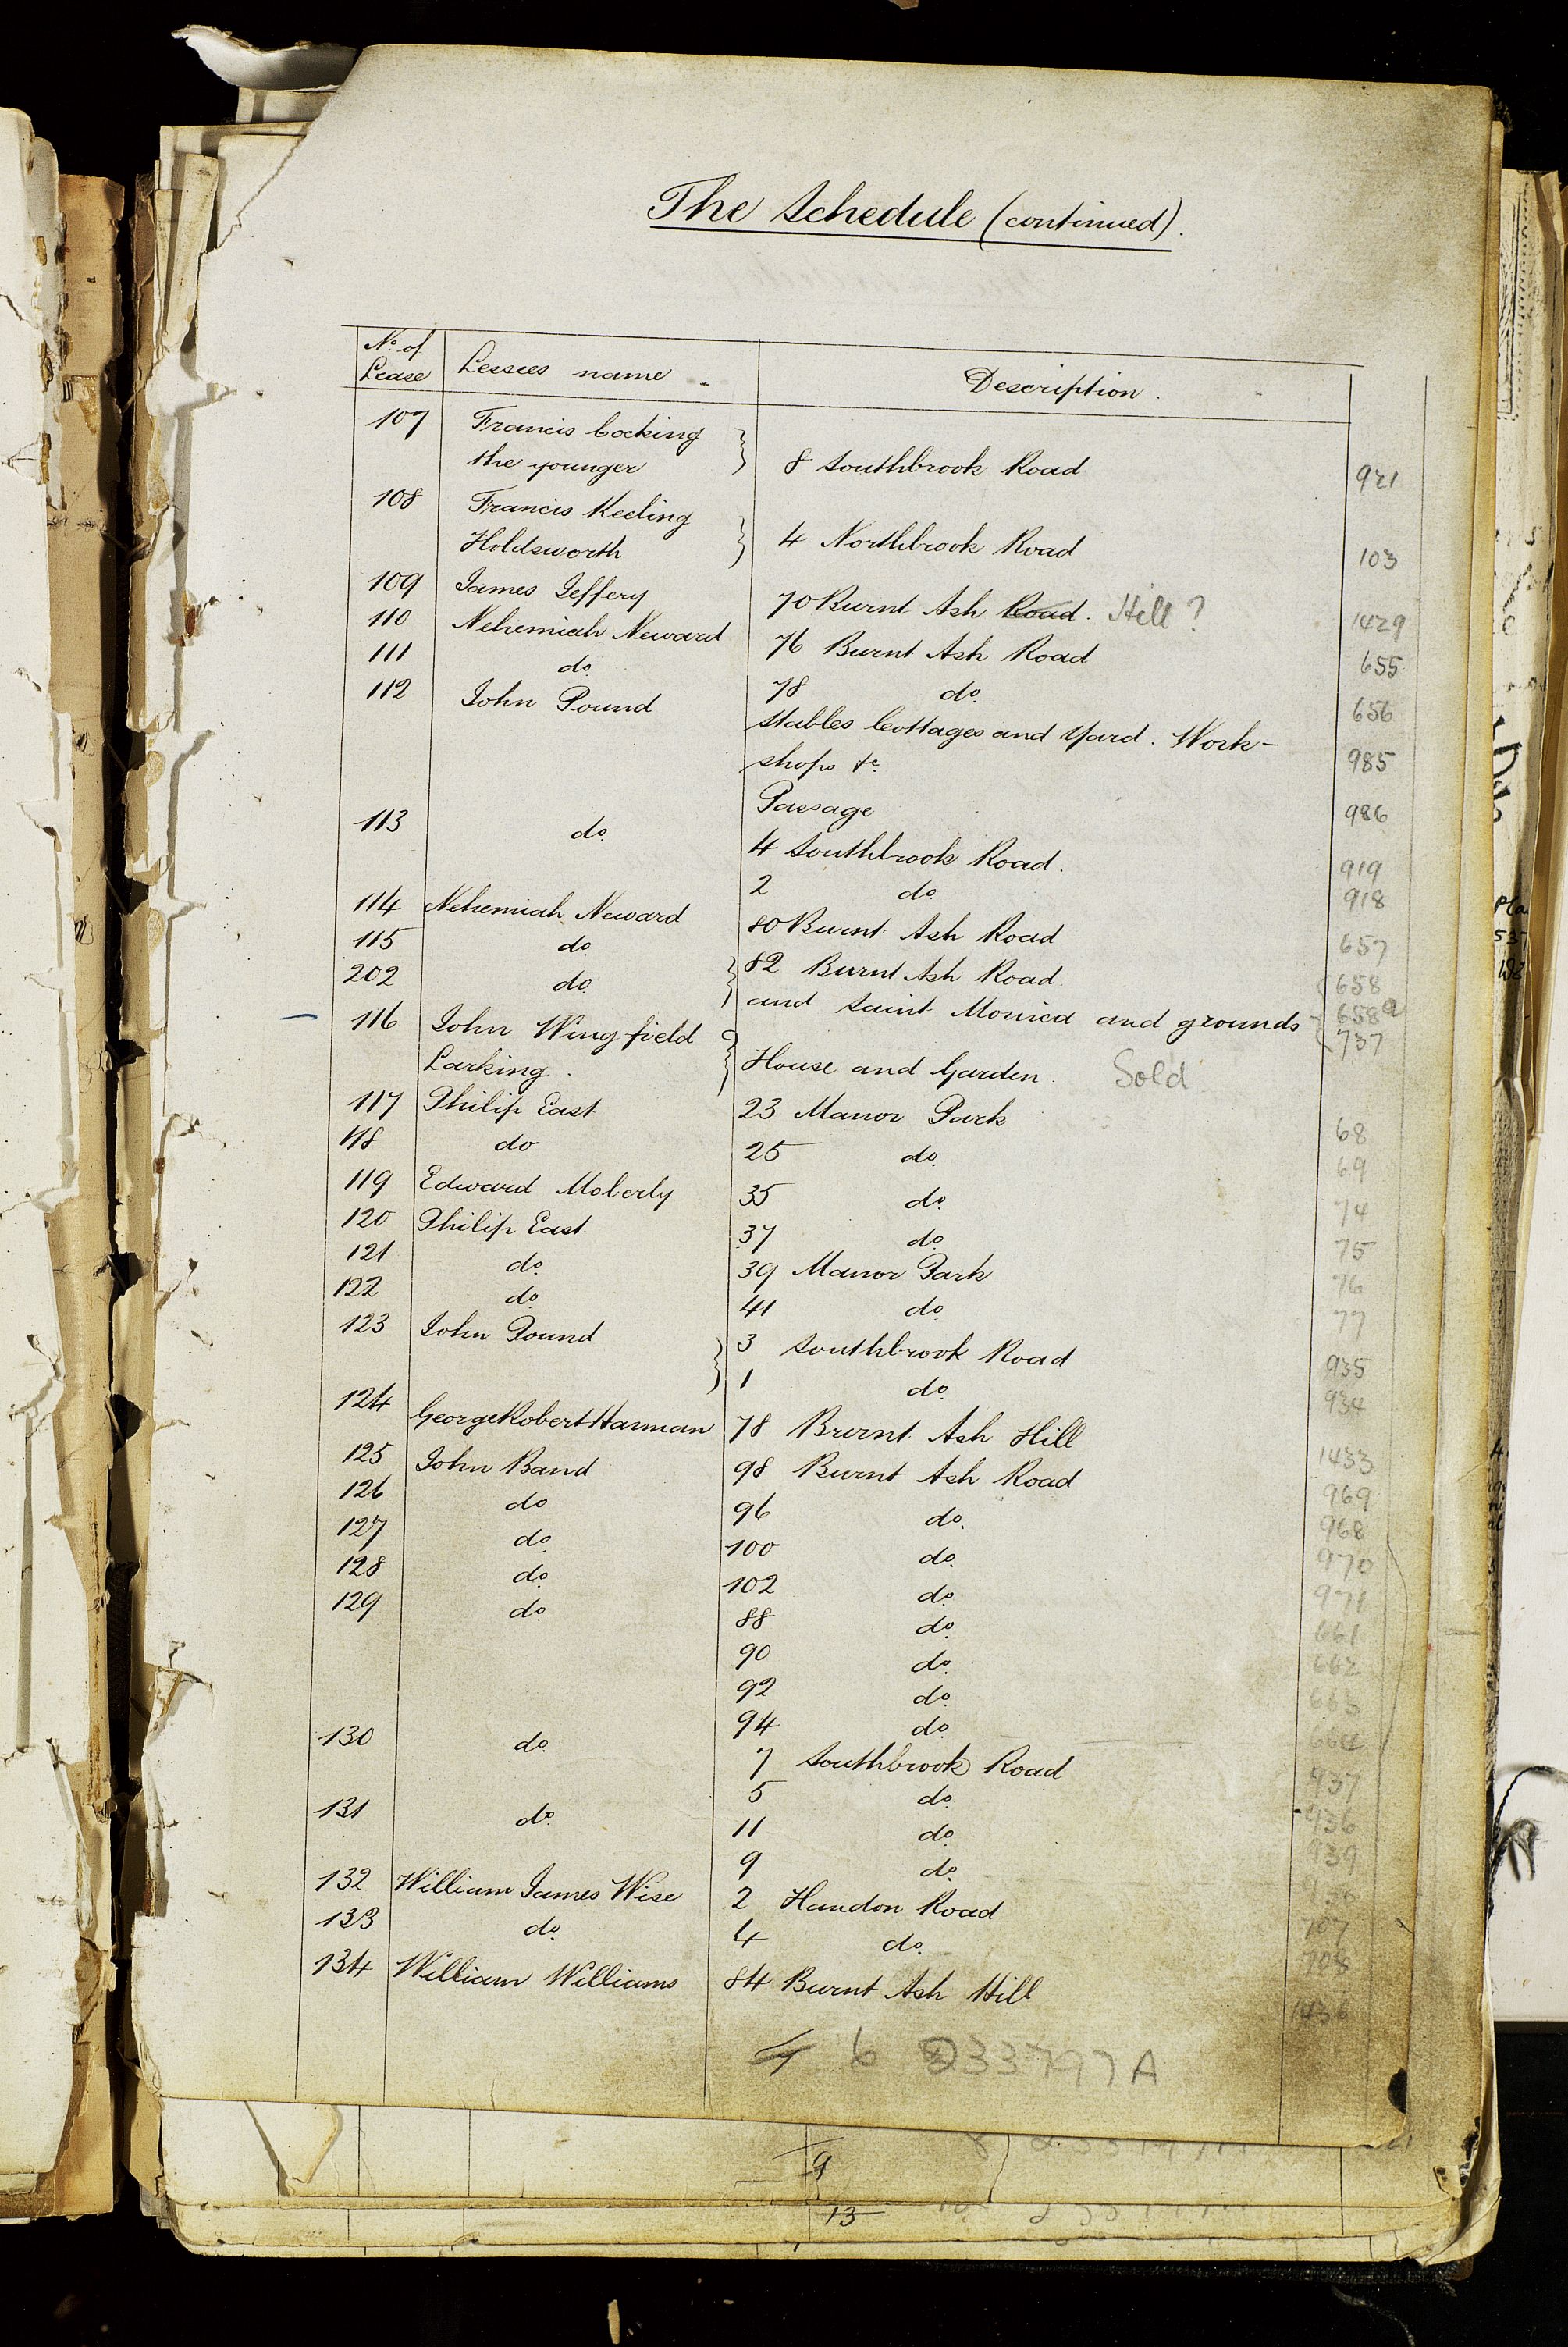 The Schedule (continued).
No. of Lease Lessees name Description.
107 Francis Cocking
the younger 8 Southbrook Road 921
108 Francis Keeling
Holdsworth 4 Northbrook Road 103
109 James Jeffery 70 Burnt Ash Road. Hill? 1429
110 Nehemiah Neward 76 Burnt Ash Road 655
111 do. 78 do. 656
112 John Pound Stables Cottages and Yard. Work-
shops &c. 985
Passage 986
113 do. 4 Southbrook Road. 919
2 do. 918
114 Nehemiah Neward 80 Burnt Ash Road 657
115 do. 82 Burnt Ash Road. 658
202 do. and Saint Monica and grounds 658a
737
116 John Wingfield
Larking. House and Garden. Sold
117 Philip East 23 Manor Park 68
118 do 25 do. 69
119 Edward Moberly 35 do. 74
120 Philip East. 37 do. 75
121 do. 39 Manor Park 76
122 do. 41 do. 77
123 John Pound 3 Southbrook Road 935
1 do. 934
124 George Robert Harman 78 Burnt Ash Hill 1433
125 John Band 98 Burnt Ash Road 969
126 do 96 do. 968
127 do. 100 do. 970
128 do. 102 do. 971
129 do. 88 do. 661
90 do. 662
92 do. 663
94 do. 664
130 do. 7 Southbrook Road 937
5 do. 936
131 do. 11 do. 939
9 do.
132 William James Wise 2 Handon Road 707
133 do. 4 do. 708
134 William Williams 84 Burnt Ash Hill 1436
6 233797A
9
13